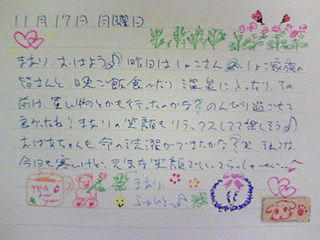 11月17日 月曜日
まより、おはよう♪ 昨日は しょこさん しょこ家族の
皆さんと、晩ご飯食べたり、温泉に入ったり、その
前は、買い物とかも行ったのかな? のんびり過ごせて
良かったね! まよりの笑顔もリラックスしてて楽しそう♪
おばあちゃんも命の洗濯ができたかな? 笑 そんでは、
今日も寒いけど、元気な笑顔でいってらっしゃーい〜
TEA
まより